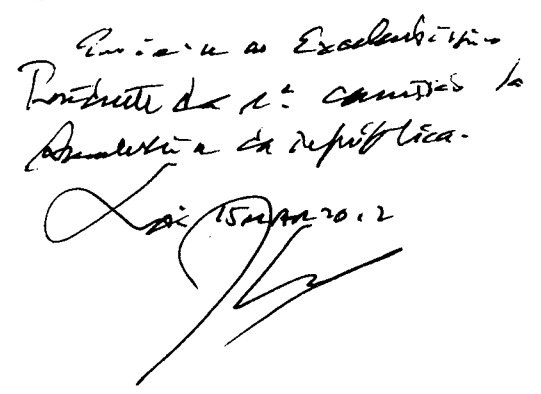 Envie-se ao Excelentíssimo
Presidente da 1ª Comissão da
Assembleia da república.
15 MAR 2012